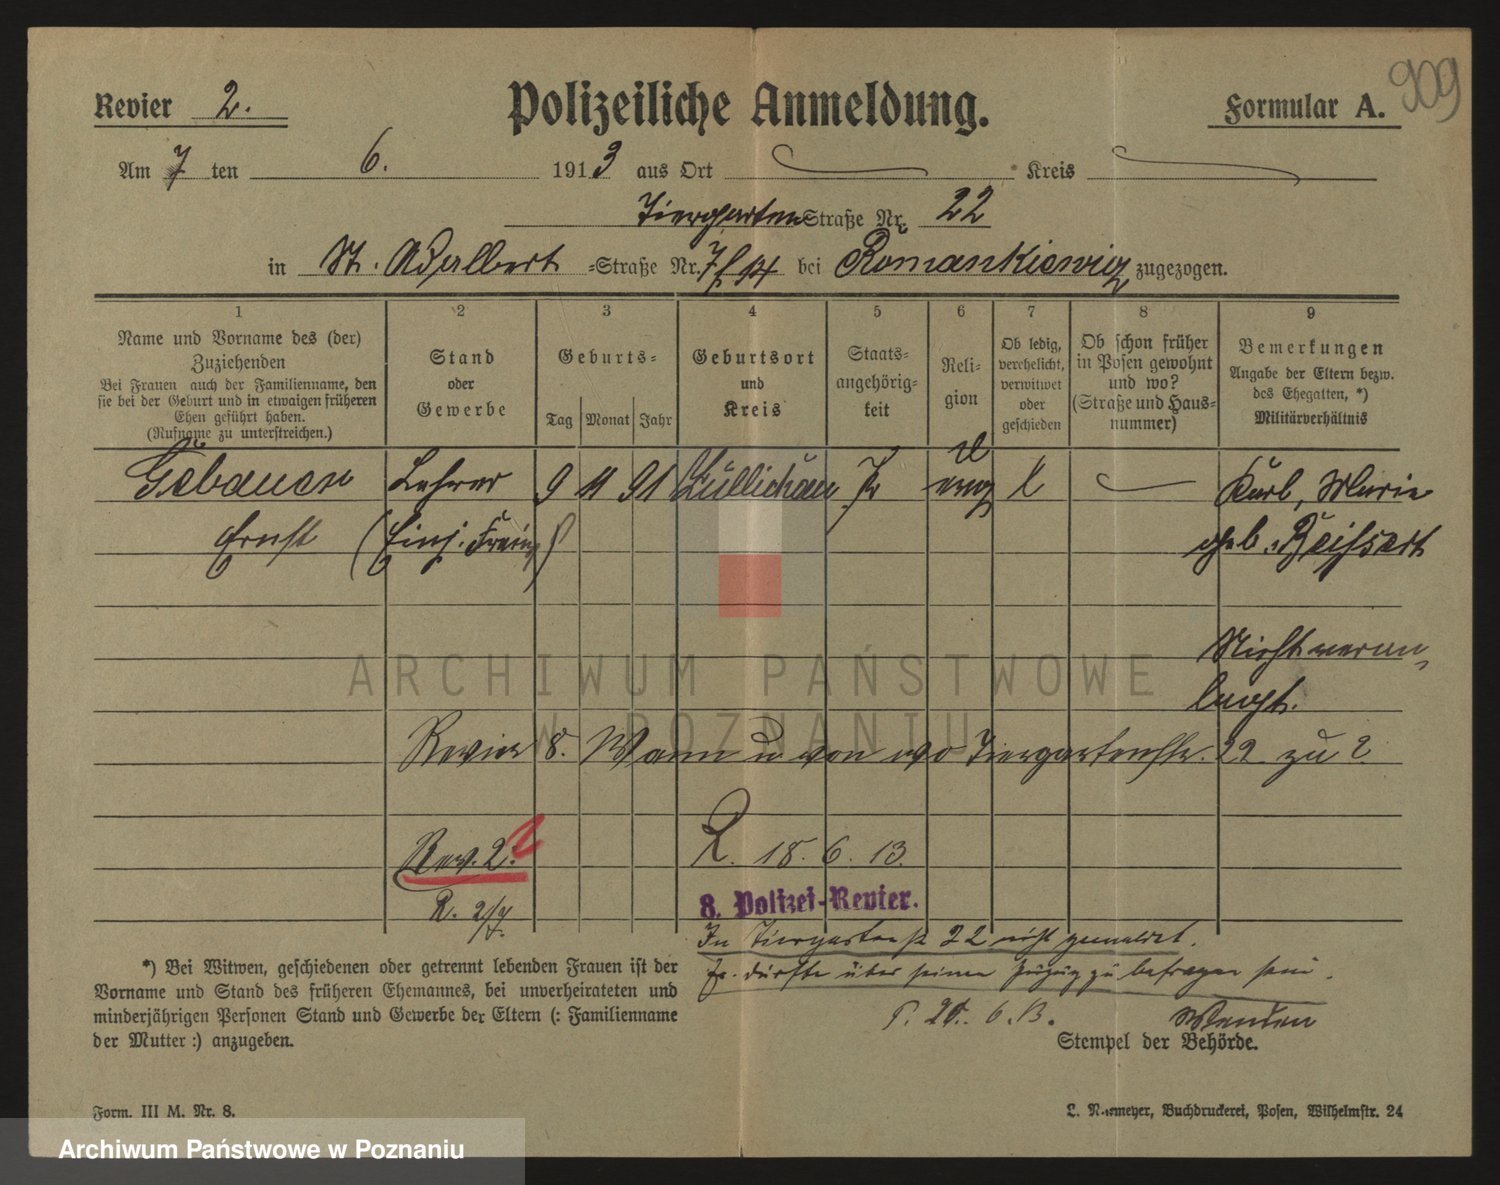 909
Revier 2.
Polizeiliche Anmeldung.
Formular A.
Am 7 ten 6. 1913 aus Ort — Kreis —
Tiergarten Straße Nr. 22
in St. Adalbert -Straße Nr. 7 bei Romankiewicz zugezogen.
1 2 3 4 5 6 7 8 9
Name und Vorname des (der)
Zuziehenden
Bei Frauen auch der Familienname, den
sie bei der Geburt und in etwaigen früheren
Ehen geführt haben.
(Rufname zu unterstreichen.)
Stand
oder
Gewerbe
Geburts-
Tag Monat Jahr
Geburtsort
und
Kreis
Staats-
angehörig-
keit
Reli-
gion
Ob ledig,
verehelicht,
verwitwet
oder
geschieden
Ob schon früher
in Posen gewohnt
und wo?
(Straße und Haus-
nummer)
Bemerkungen
Angabe der Eltern bezw.
des Ehegatten, *)
Militärverhältnis
Gebauer Lehrer 9 11 91 Züllichau Pr evng l — Karl, Marie
Ernst (Einj. Freiw.) geb. Beissert
Nicht veran-
lagt.
Revier 8. Wann u von wo Tiergartenstr. 22 zu?
Rev. 2.
R. 18. 6. 13.
R. 2/7.
8. Polizei-Revier.
In Tiergartenstr 22 nicht gemeldet.
Er dürfte über seinen Zuzug zu befragen sein.
6. 13.
*) Bei Witwen, geschiedenen oder getrennt lebenden Frauen ist der
Vorname und Stand des früheren Ehemannes, bei unverheirateten und
minderjährigen Personen Stand und Gewerbe der Eltern (: Familienname
der Mutter :) anzugeben.
Stempel der Behörde.
Form. III M. Nr. 8.
Buchdruckerei, Posen, Wilhelmstr. 24
ARCHIWUM PAŃSTWOWE
W POZNANIU
Archiwum Państwowe w Poznaniu